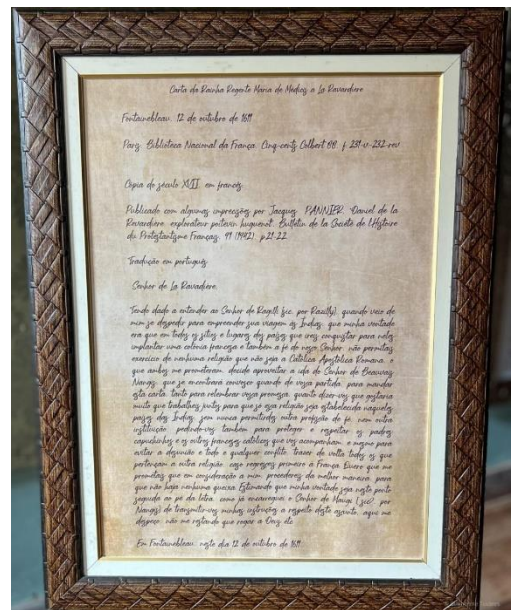 Carta da Rainha Regente Maria de Medics a La Ravardiere
Fontainebleau, 12 de outubro de 1611
Paris, Biblioteca Nacional da França, Cinq-cents Colbert 98, f. 231-v-232-rev
Copia do século XVII, em francês.
Publicado com algumas imprecções por Jacques PANNIER, Daniel de la
Ravardiere, explorateur poitevin huguenot, Bulletin de la Societé de l'Histoire
du Protestantisme Français, 99 (1942), p.21-22
Tradução em português:
Senhor de La Ravardiere.
Tendo dado a entender ao Senhor de Rasilli (sic. por Razilly), quando veio de
mim se despedir para empreender sua viagem às Índias, que minha vontade
era que em todos os sítios e lugares dos países que ireis conquistar para neles
implantar uma colonia francesa e também a fé de nosso Senhor, não permitais
exercício de nenhuma religião que não seja a Católica Apostólica Romana, o
que ambos me prometeram, decido aproveitar a ida do Senhor de Beauvais
Nangis, que se encontrará convosco quando de vossa partida, para mandar
esta carta, tanto para relembrar vossa promessa, quanto dizer-vos que gostaria
muito que trabalheis juntos para que só essa religião seja estabelecida naqueles
países das Índias, sem nunca permitirdes outra profissão de fé, nem outra
instituição, pedindo-vos também para proteger e respeitar os padres
capuchinhos e os outros franceses católicos que vos acompanham, e mesmo para
evitar a desunião e todo e qualquer conflito, trazer de volta todos os que
pertençam a outra religião, caso regresseis primeiro a França. Quero que me
prometais que em consideração a mim, procedereis da melhor maneira, para
que não haja nenhuma queixa. Estimando que minha vontade seja neste ponto
seguida ao pé da letra, como já encarreguei o Senhor de Mangis (sic), por
Nangis) de transmitir-vos minhas instruções a respeito deste assunto, aqui me
despeço, não me restando que rogar a Deus, etc.
Em Fontainebleau, neste dia 12 de outubro de 1611.